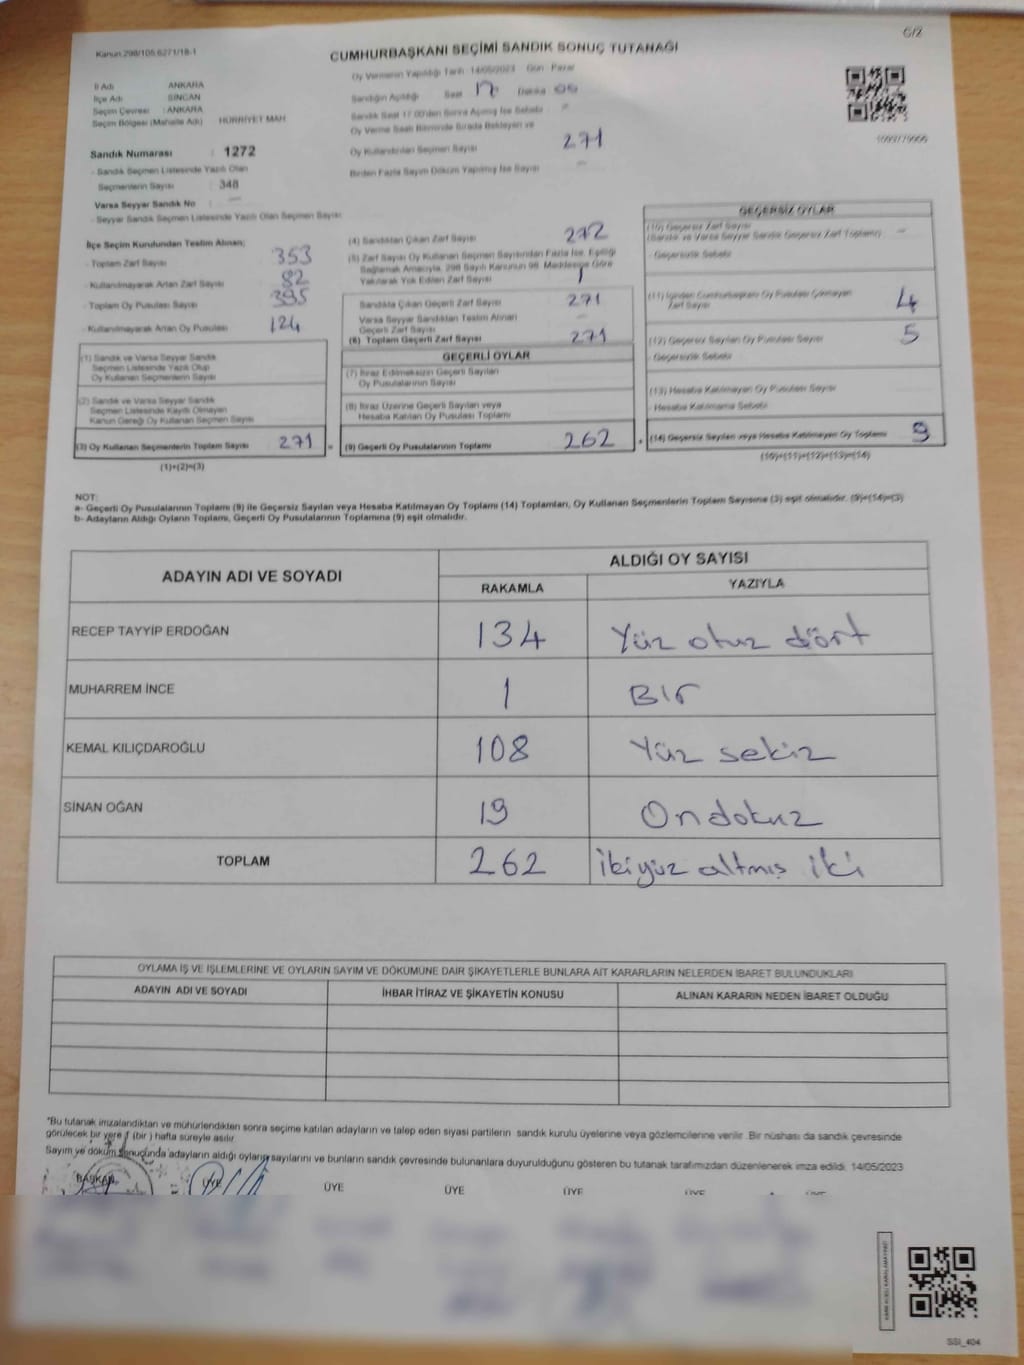 Kanun:298/105,6271/18-1
C/2
CUMHURBAŞKANI SEÇİMİ SANDIK SONUÇ TUTANAĞI
Oy Vermenin Yapıldığı Tarih: 14/05/2023 Gün: Pazar
İl Adı ANKARA
İlçe Adı SİNCAN
Seçim Çevresi : ANKARA
Seçim Bölgesi (Mahalle Adı) HÜRRİYET MAH
Sandığın Açıldığı Saat 17 Dakika 05
Sandık Saat 17.00'den Sonra Açılmış İse Sebebi —
Oy Verme Saati Bitiminde Sırada Bekleyen ve
Oy Kullandırılan Seçmen Sayısı 271
Birden Fazla Sayım Döküm Yapılmış İse Sayısı —
1099779966
Sandık Numarası : 1272
- Sandık Seçmen Listesinde Yazılı Olan
Seçmenlerin Sayısı : 348
Varsa Seyyar Sandık No : —
- Seyyar Sandık Seçmen Listesinde Yazılı Olan Seçmen Sayısı:
İlçe Seçim Kurulundan Teslim Alınan;
- Toplam Zarf Sayısı 353
- Kullanılmayarak Artan Zarf Sayısı 82
- Toplam Oy Pusulası Sayısı 395
- Kullanılmayarak Artan Oy Pusulası 124
(1) Sandık ve Varsa Seyyar Sandık
Seçmen Listesinde Yazılı Olup
Oy Kullanan Seçmenlerin Sayısı
(2) Sandık ve Varsa Seyyar Sandık
Seçmen Listesinde Kayıtlı Olmayan
Kanun Gereği Oy Kullanan Seçmen Sayısı
(3) Oy Kullanan Seçmenlerin Toplam Sayısı 271 =
(1)+(2)=(3)
(4) Sandıktan Çıkan Zarf Sayısı 272
(5) Zarf Sayısı Oy Kullanan Seçmen Sayısından Fazla İse, Eşitliği
Sağlamak Amacıyla, 298 Sayılı Kanunun 98. Maddesine Göre
Yakılarak Yok Edilen Zarf Sayısı 1
Sandıkta Çıkan Geçerli Zarf Sayısı 271
Varsa Seyyar Sandıktan Teslim Alınan
Geçerli Zarf Sayısı —
(6) Toplam Geçerli Zarf Sayısı 271
GEÇERLİ OYLAR
(7) İtiraz Edilmeksizin Geçerli Sayılan
Oy Pusulalarının Sayısı
(8) İtiraz Üzerine Geçerli Sayılan veya
Hesaba Katılan Oy Pusulası Toplamı
(9) Geçerli Oy Pusulalarının Toplamı 262 +
GEÇERSİZ OYLAR
(10) Geçersiz Zarf Sayısı —
(Sandık ve Varsa Seyyar Sandık Geçersiz Zarf Toplamı)
- Geçersizlik Sebebi:
(11) İçinden Cumhurbaşkanı Oy Pusulası Çıkmayan
Zarf Sayısı 4
(12) Geçersiz Sayılan Oy Pusulası Sayısı 5
- Geçersizlik Sebebi
(13) Hesaba Katılmayan Oy Pusulası Sayısı
- Hesaba Katılmama Sebebi
(14) Geçersiz Sayılan veya Hesaba Katılmayan Oy Toplamı 9
(10)+(11)+(12)+(13)=(14)
NOT:
a- Geçerli Oy Pusulalarının Toplamı (9) ile Geçersiz Sayılan veya Hesaba Katılmayan Oy Toplamı (14) Toplamları, Oy Kullanan Seçmenlerin Toplam Sayısına (3) eşit olmalıdır. (9)+(14)=(3)
b- Adayların Aldığı Oyların Toplamı, Geçerli Oy Pusulalarının Toplamına (9) eşit olmalıdır.
ADAYIN ADI VE SOYADI
ALDIĞI OY SAYISI
RAKAMLA YAZIYLA
RECEP TAYYİP ERDOĞAN 134 Yüz otuz dört
MUHARREM İNCE 1 Bir
KEMAL KILIÇDAROĞLU 108 Yüz sekiz
SİNAN OĞAN 19 Ondokuz
TOPLAM 262 İkiyüz altmış iki
OYLAMA İŞ VE İŞLEMLERİNE VE OYLARIN SAYIM VE DÖKÜMÜNE DAİR ŞİKAYETLERLE BUNLARA AİT KARARLARIN NELERDEN İBARET BULUNDUKLARI
ADAYIN ADI VE SOYADI İHBAR İTİRAZ VE ŞİKAYETİN KONUSU ALINAN KARARIN NEDEN İBARET OLDUĞU
*Bu tutanak imzalandıktan ve mühürlendikten sonra seçime katılan adayların ve talep eden siyasi partilerin sandık kurulu üyelerine veya gözlemcilerine verilir. Bir nüshası da sandık çevresinde
görülecek bir yere 1 (bir) hafta süreyle asılır.
Sayım ve döküm sonucunda adayların aldığı oyların sayılarını ve bunların sandık çevresinde bulunanlara duyurulduğunu gösteren bu tutanak tarafımızdan düzenlenerek imza edildi. 14/05/2023
BAŞKAN ÜYE ÜYE ÜYE ÜYE ÜYE ÜYE
SSI_404